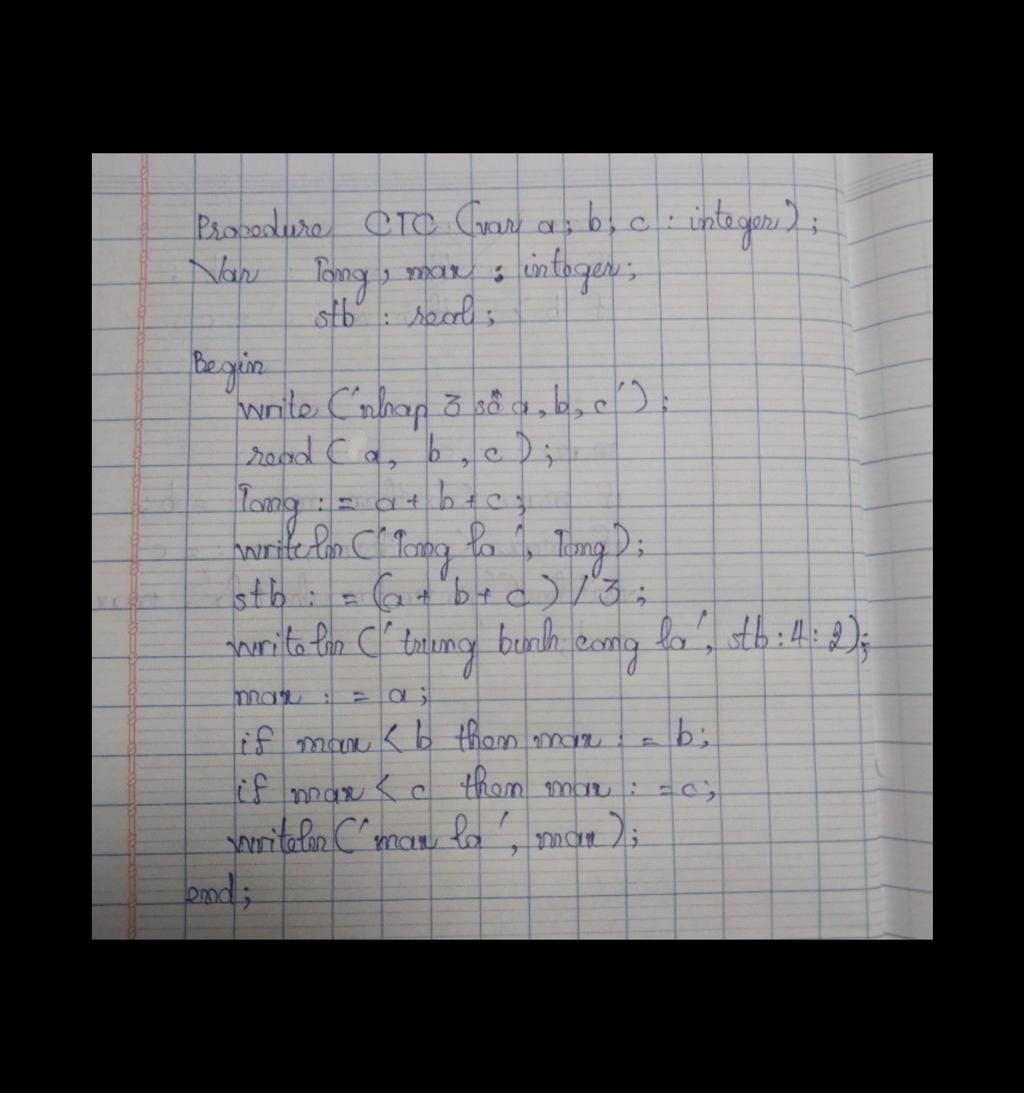 Procedure CTC (var a; b; c : integer);
Var Tong, max : integer;
stb : real;
Begin
write ('nhap 3 số a, b, c');
read ( a, b, c );
Tong : = a + b + c;
writeln ('Tong la', Tong);
stb : = (a + b + c ) / 3;
writeln (' trung binh cong la', stb : 4 : 2);
max : = a;
if max < b then max : = b;
if max < c then max : = c;
writeln (' max la', max );
end;